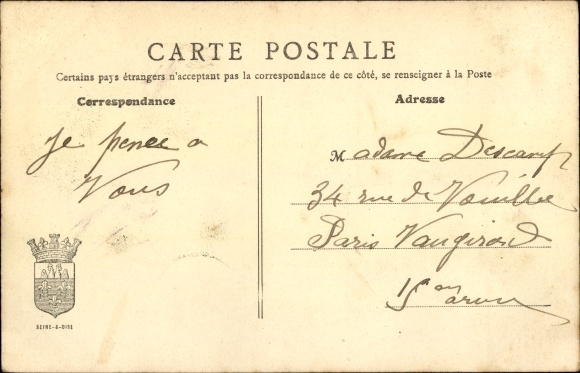 CARTE POSTALE
Certains pays étrangers n'acceptant pas la correspondance de ce côté, se renseigner à la Poste
Correspondance
Adresse
Je pense a
Vous
Madame Descamps
34 rue de Vouillé
Paris Vaugirard
15em arron
SEINE-&-OISE